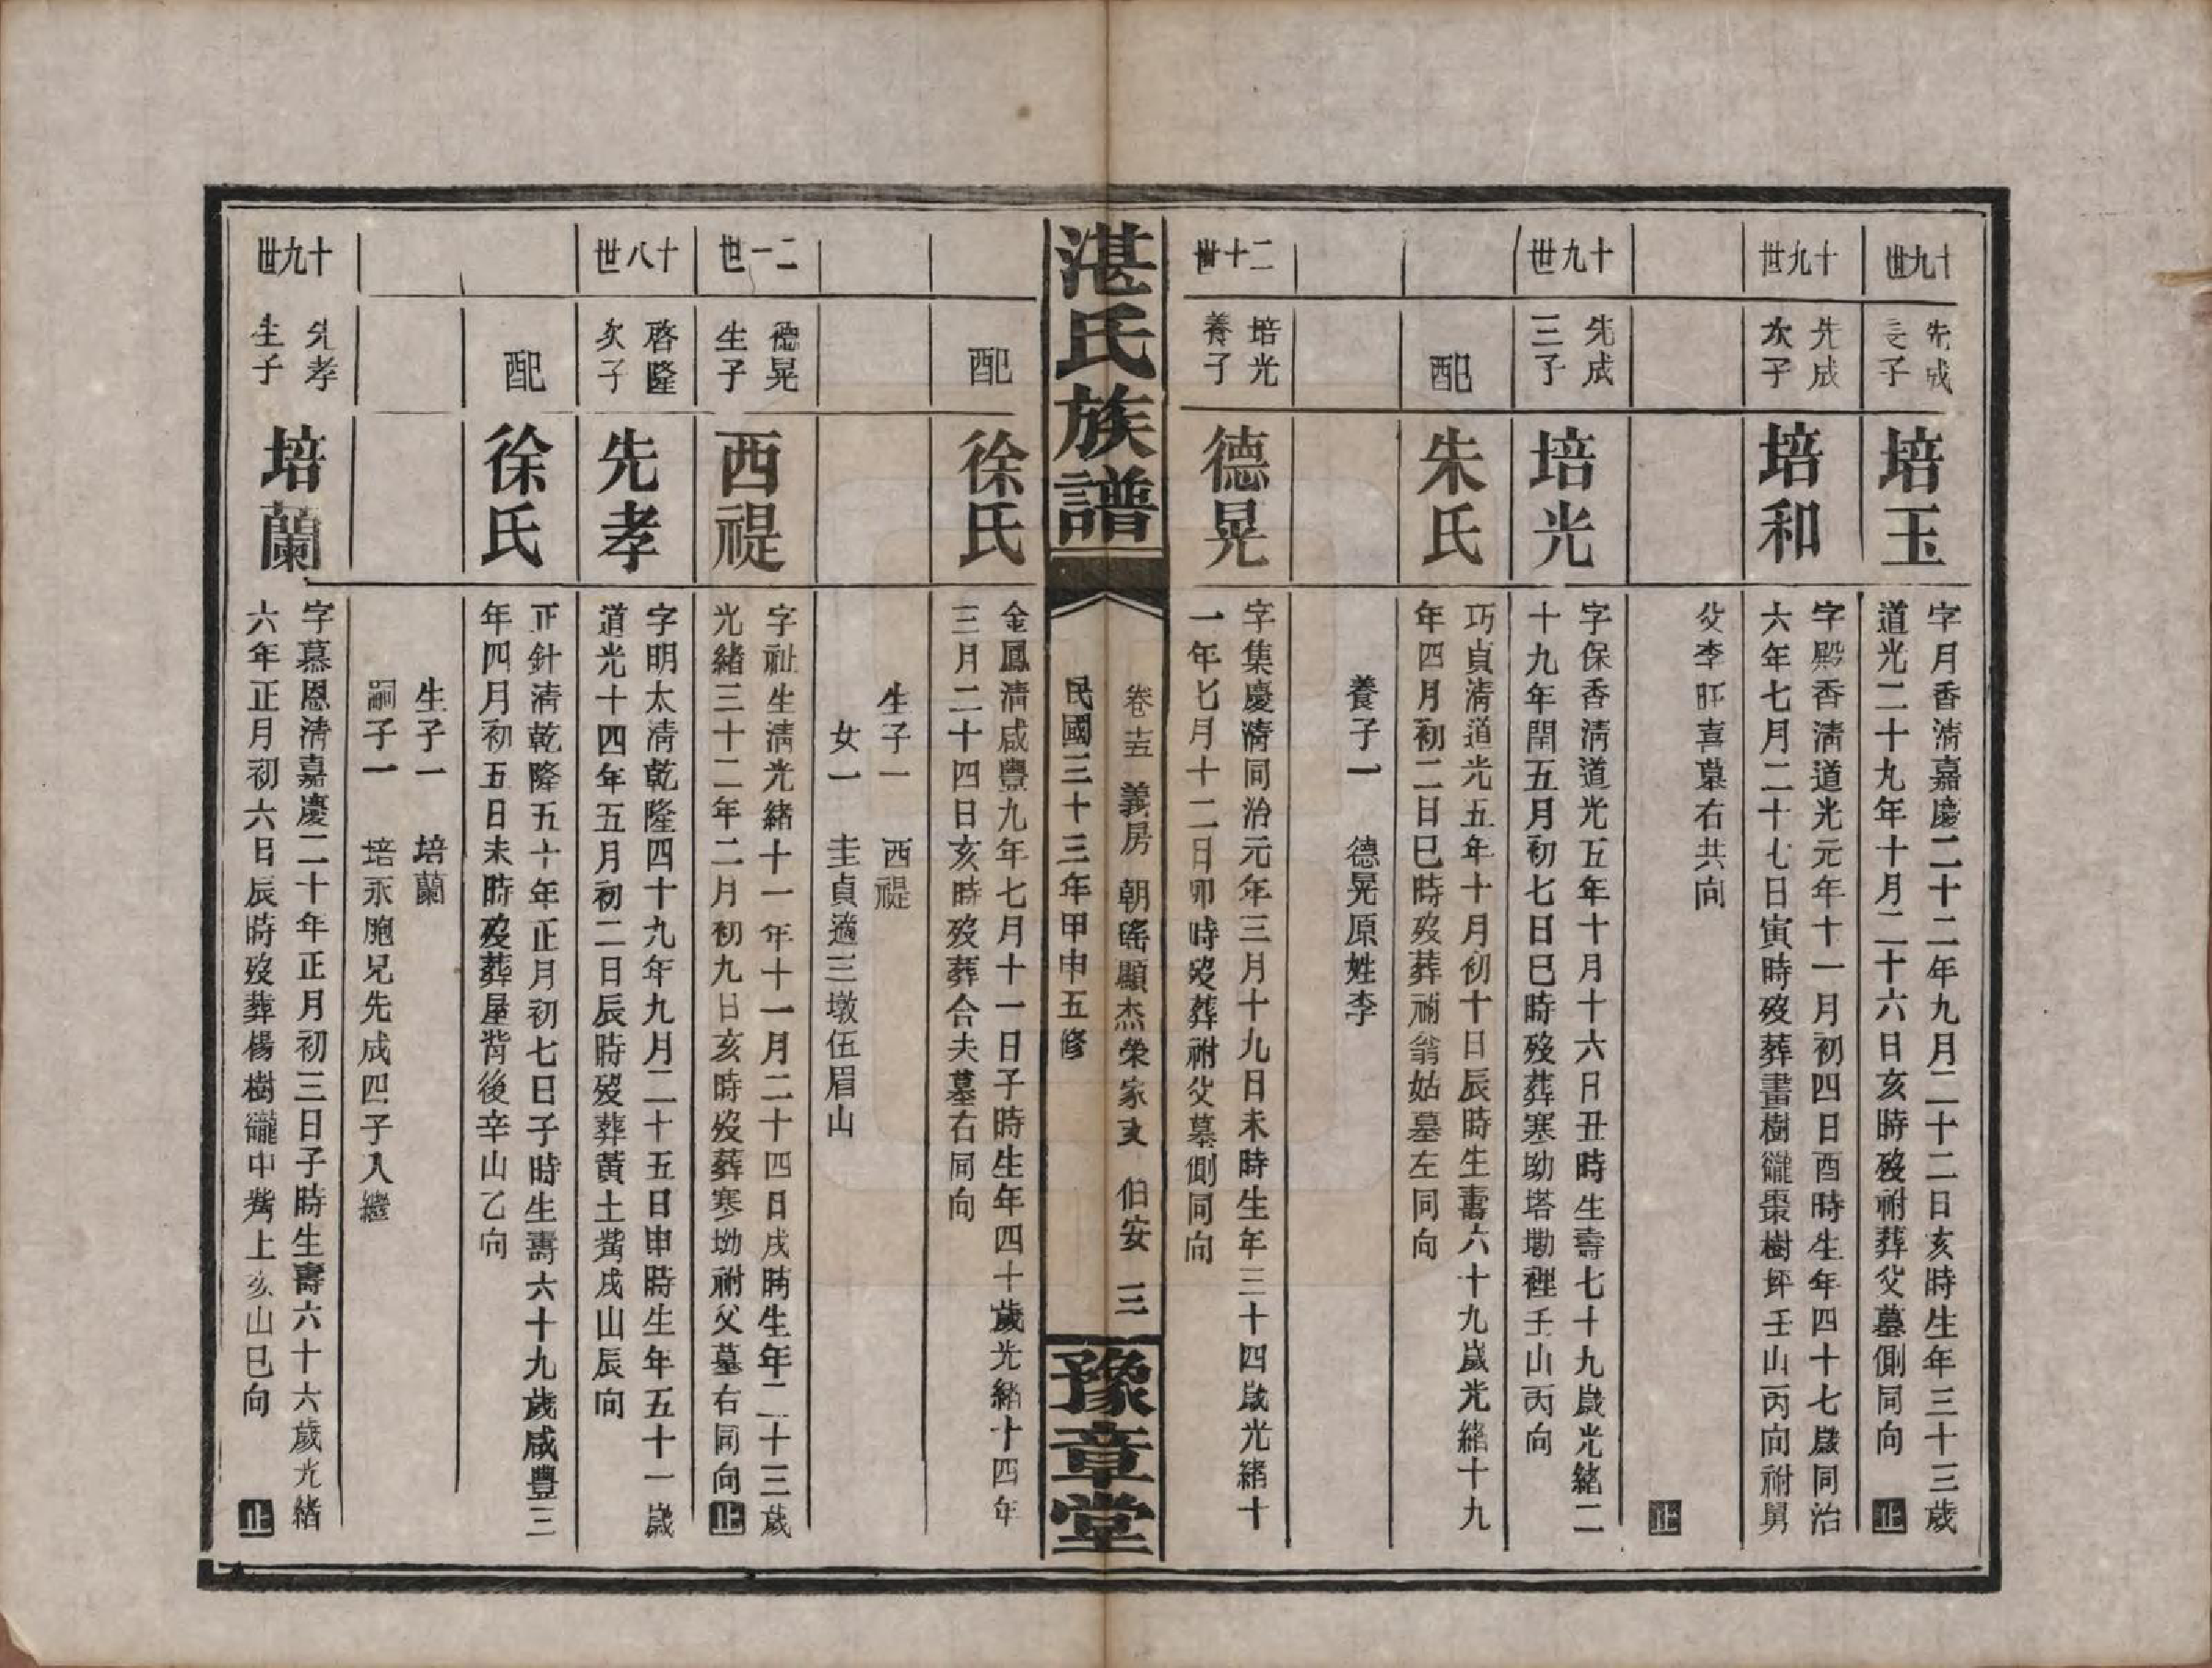 十九世
先成
長子
培玉
字月香淸嘉慶二十二年九月二十二日亥時生年三十三歲
道光二十九年十月二十六日亥時歿祔葬父墓側同向 止
十九世
先成
次子
培和
字殿香淸道光元年十一月初四日酉時生年四十七歲同治
六年七月二十七日寅時歿葬畫樹棗樹坪壬山丙向祔舅
父李旺喜墓右共向
止
十九世
先成
三子
培光
字保香淸道光五年十月十六日丑時生壽七十九歲光緒二
十九年閏五月初七日巳時歿葬寒坳塔墈裡壬山丙向
配
朱氏
巧貞淸道光五年十月初十日辰時生壽六十九歲光緒十九
年四月初二日巳時歿葬祔翁姑墓左同向
養子一 德晃原姓李
二十世
培光
養子
德晃
字集慶淸同治元年三月十九日未時生年三十四歲光緒十
一年七月十二日卯時歿葬祔父墓側同向
湛氏族譜
卷十五 義房 朝瑤顯杰榮家支 伯安 三
民國三十三年甲申五修
豫章堂
配
徐氏
金鳳淸咸豐九年七月十一日子時生年四十歲光緒十四年
三月二十四日亥時歿葬合夫墓右同向
生子一 西禔
女一 圭貞適三墩伍眉山
二一世
德晃
生子
西禔
字祉生淸光緒十一年十一月二十四日戌時生年二十三歲
光緒三十二年二月初九日亥時歿葬寒坳祔父墓右同向 止
十八世
啓隆
次子
先孝
字明太淸乾隆四十九年九月二十五日申時生年五十一歲
道光十四年五月初二日辰時歿葬黃土嘴戌山辰向
配
徐氏
正針淸乾隆五十年正月初七日子時生壽六十九歲咸豐三
年四月初五日未時歿葬屋背後辛山乙向
生子一 培蘭
嗣子一 培永胞兄先成四子入繼
十九世
先孝
生子
培蘭
字慕恩淸嘉慶二十年正月初三日子時生壽六十六歲光緒
六年正月初六日辰時歿葬楊樹中嘴上亥山巳向 止